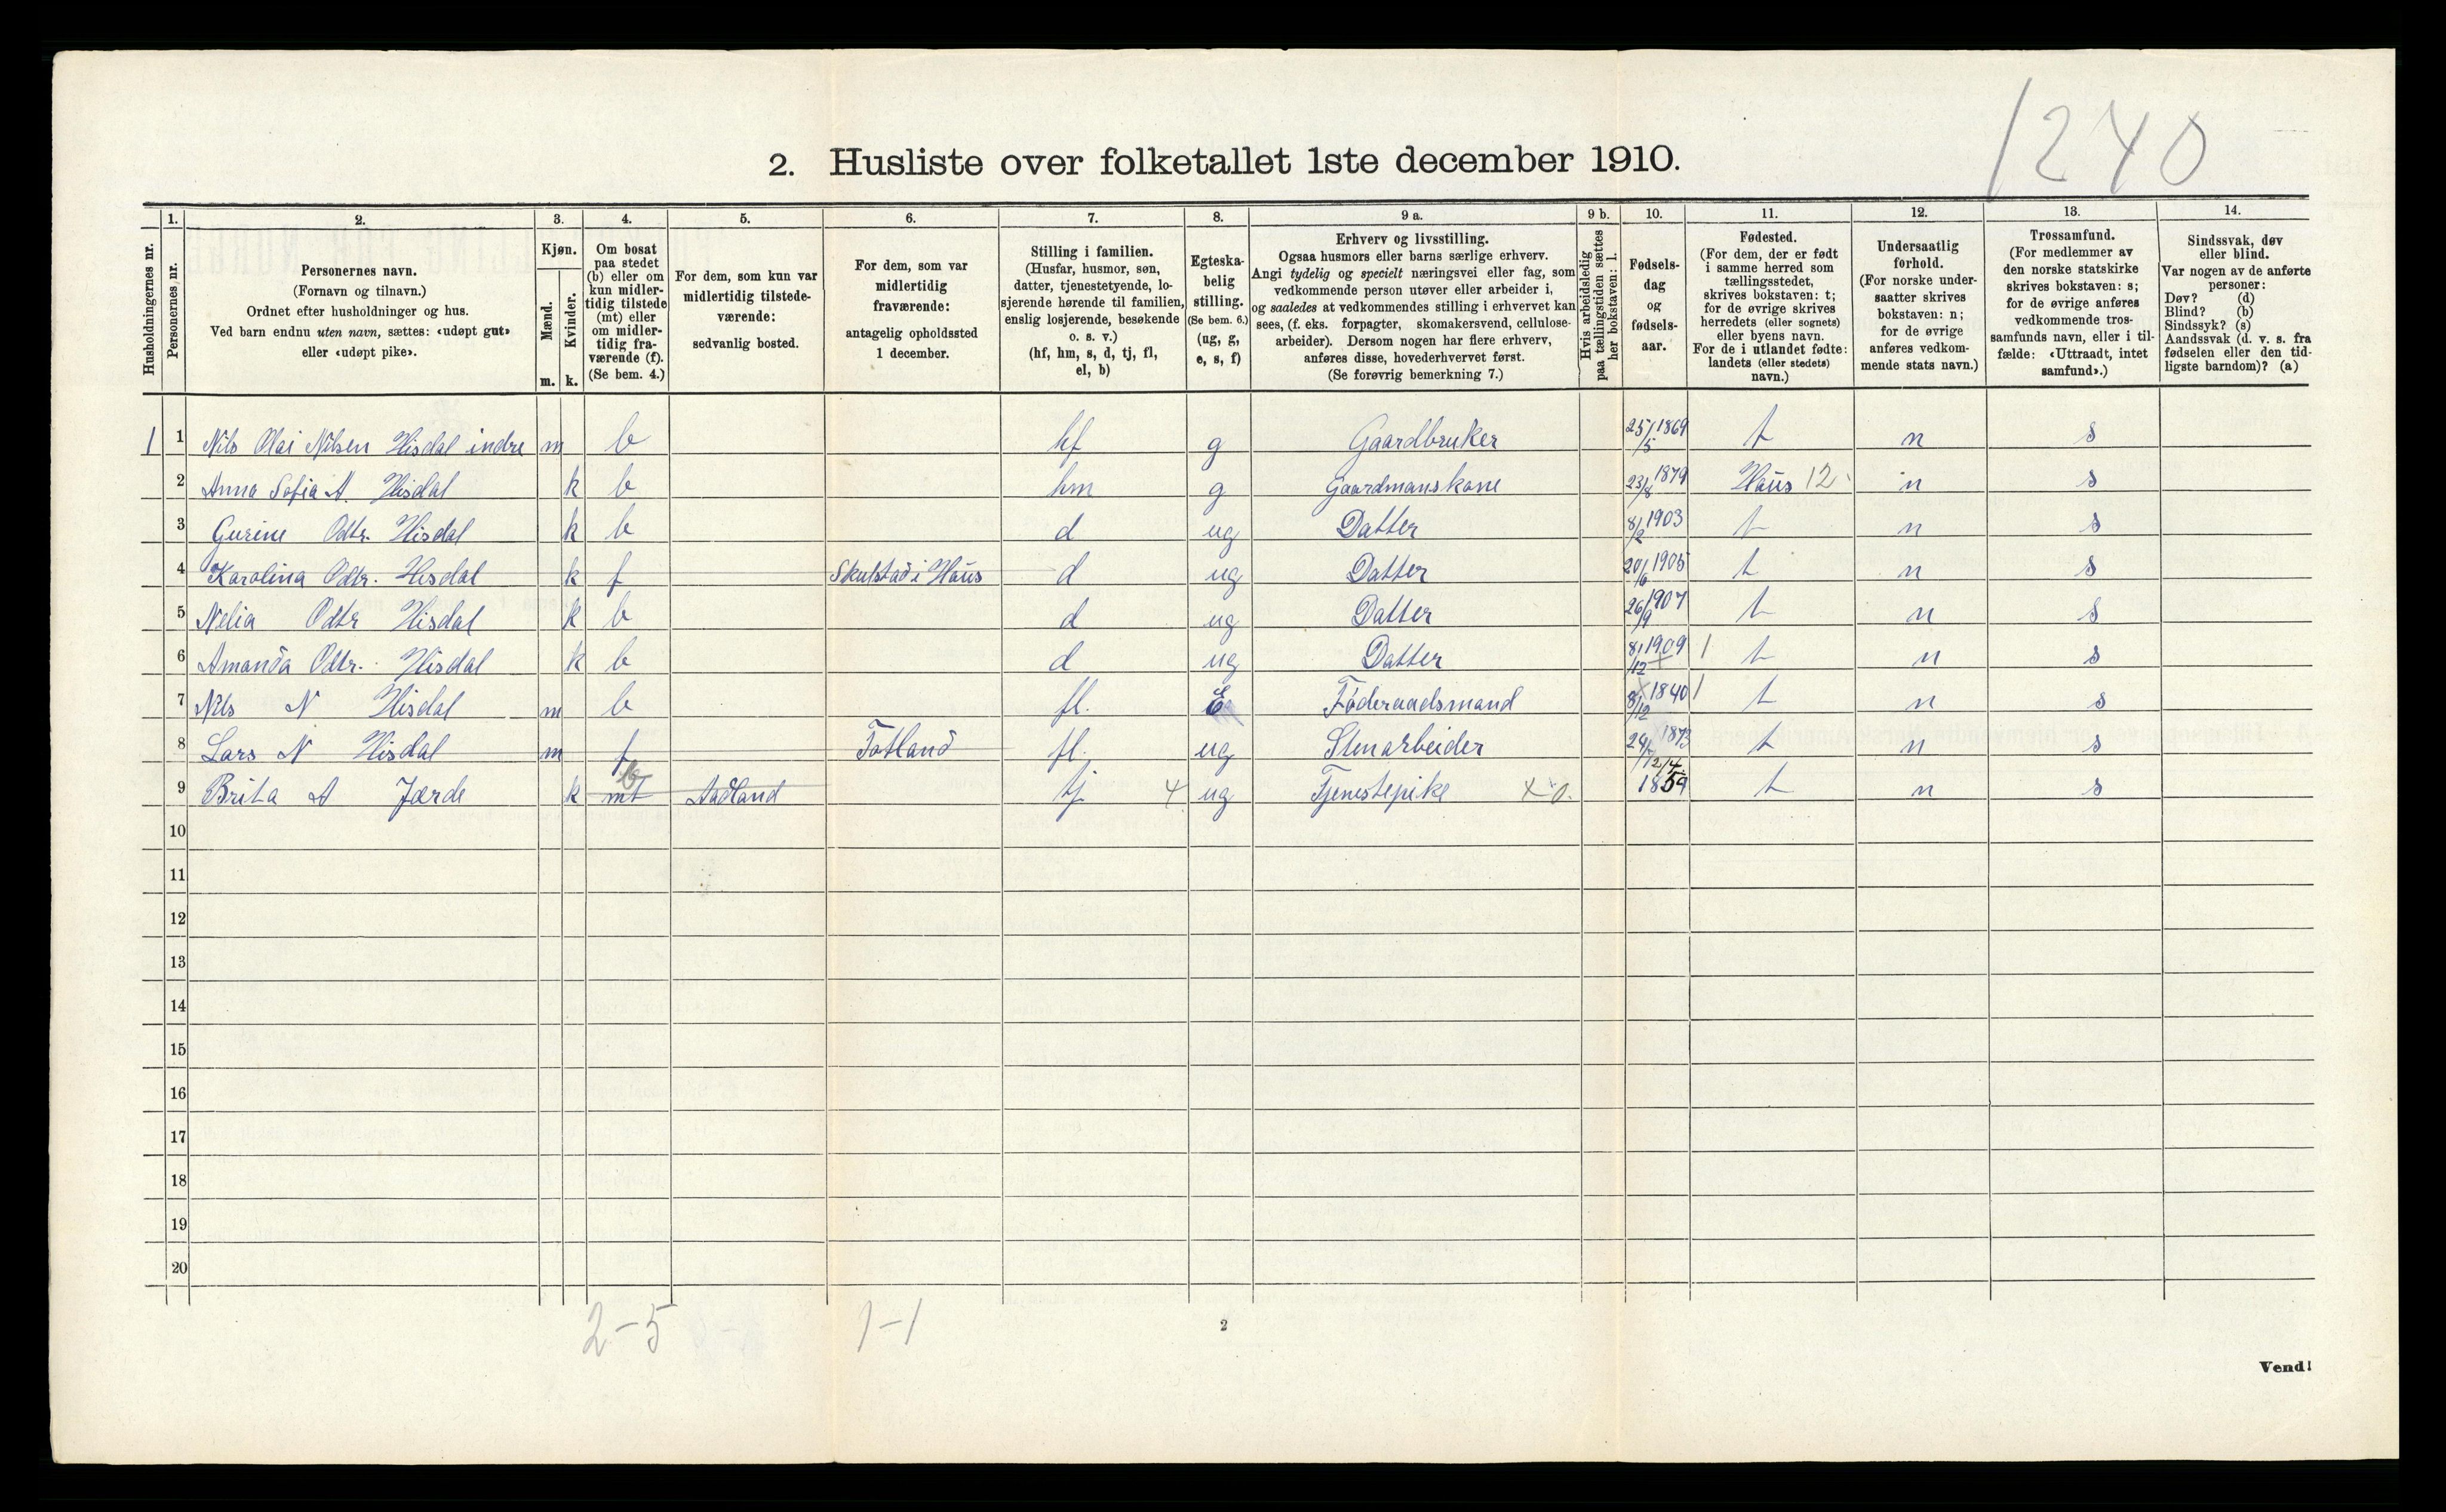 1240
2. Husliste over folketallet 1ste december 1910.
Husholdningernes nr.
1.
Personernes nr.
2.
Personernes navn.
(Fornavn og tilnavn.)
Ordnet efter husholdninger og hus.
Ved barn endnu uten navn, sættes: «udøpt gut»
eller «udøpt pike».
3.
Kjøn.
Mænd.
Kvinder.
m. k.
4.
Om bosat
paa stedet
(b) eller om
kun midler-
tidig tilstede
(mt) eller
om midler-
tidig fra-
værende (f).
(Se bem. 4.)
5.
For dem, som kun var
midlertidig tilstede-
værende:
sedvanlig bosted.
6.
For dem, som var
midlertidig
fraværende:
antagelig opholdssted
1 december.
7.
Stilling i familien.
(Husfar, husmor, søn,
datter, tjenestetyende, lo-
sjerende hørende til familien,
enslig losjerende, besøkende
o. s. v.)
(hf, hm, s, d, tj, fl,
el, b)
8.
Egteska-
belig
stilling.
(Se bem. 6.)
(ug, g,
e, s, f)
9 a.
Erhverv og livsstilling.
Ogsaa husmors eller barns særlige erhverv.
Angi tydelig og specielt næringsvei eller fag, som
vedkommende person utøver eller arbeider i,
og saaledes at vedkommendes stilling i erhvervet kan
sees, (f. eks. forpagter, skomakersvend, cellulose-
arbeider). Dersom nogen har flere erhverv,
anføres disse, hovederhvervet først.
(Se forøvrig bemerkning 7.)
9 b.
Hvis arbeidsledig
paa tællingstiden sættes
her bokstaven: l.
10.
Fødsels-
dag
og
fødsels-
aar.
11.
Fødested.
(For dem, der er født
i samme herred som
tællingsstedet,
skrives bokstaven: t;
for de øvrige skrives
herredets (eller sognets)
eller byens navn.
For de i utlandet fødte:
landets (eller stedets)
navn.)
12.
Undersaatlig
forhold.
(For norske under-
saatter skrives
bokstaven: n;
for de øvrige
anføres vedkom-
mende stats navn.)
13.
Trossamfund.
(For medlemmer av
den norske statskirke
skrives bokstaven: s;
for de øvrige anføres
vedkommende tros-
samfunds navn, eller i til-
fælde: «Uttraadt, intet
samfund».)
14.
Sindssvak, døv
eller blind.
Var nogen av de anførte
personer:
Døv? (d)
Blind? (b)
Sindssyk? (s)
Aandssvak (d. v. s. fra
fødselen eller den tid-
ligste barndom)? (a)
1 1 Nils Olai Nilsen Hisdal indre m b hf g Gaardbruker 25/5 1869 t n s
2 Anna Sofia A. Hisdal k b hm g Gaardmanskone 23/8 1879 Haus 12 n s
3 Gurine Odtr. Hisdal k b d ug Datter 8/2 1903 t n s
4 Karolina Odtr. Hisdal k f Skulstad i Haus d ug Datter 20/6 1905 t n s
5 Nelia Odtr Hisdal k b d ug Datter 26/9 1907 t n s
6 Amanda Odtr. Hisdal k b d ug Datter 8/12 1909 1 t n s
7 Nils N Hisdal m b fl. E Føderaadsmand 8/12 1840 1 t n s
8 Lars N Hisdal m f Totland fl. ug Stenarbeider 24/ 1873 t n s
9 Brita A Jærde k mt b Aadland tj 4 ug Tjenestepike x 0. 12/4 1859 t n s
10
11
12
13
14
15
16
17
18
19
20
2-5 1-1
2
Vend!